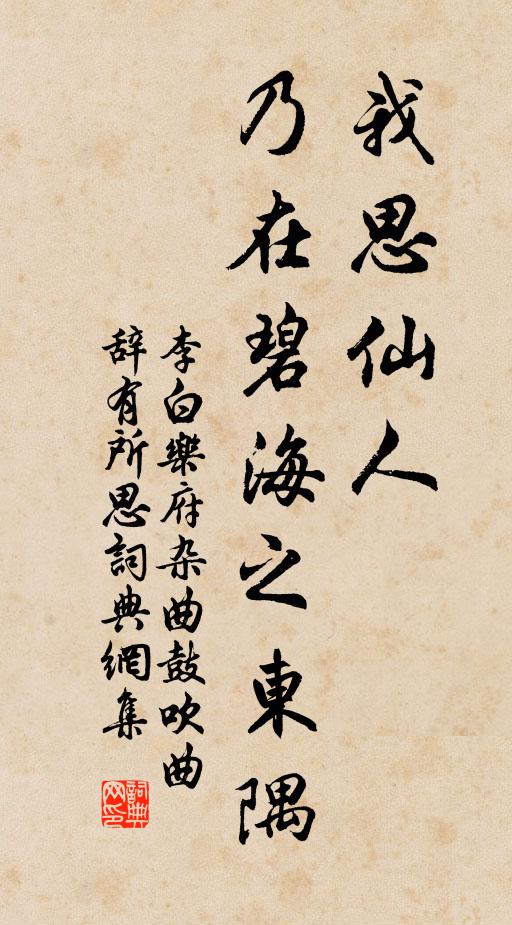 我思仙人
乃在碧海之東隅
李白樂府杂曲鼓吹曲
辞有所思詞典網集
詞典
网印